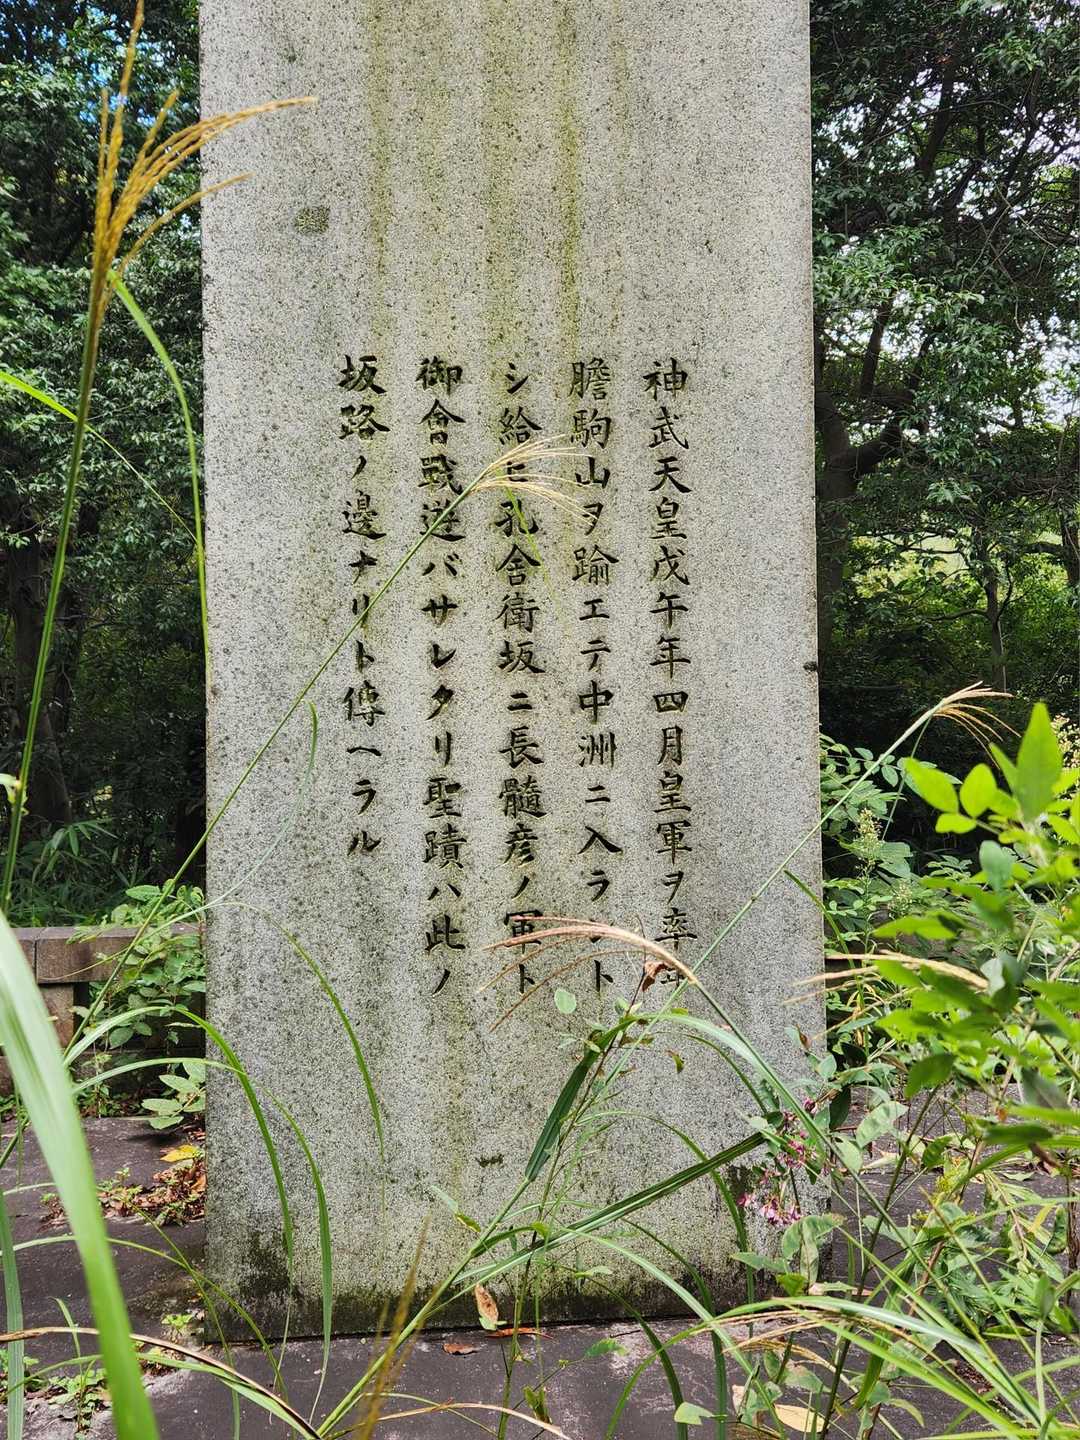 神武天皇戊午年四月皇軍ヲ率ヰ
膽駒山ヲ踰エテ中洲ニ入ラント
シ給ヒ孔舎衛坂ニ長髓彦ノ軍ト
御會戰遊バサレタリ聖蹟ハ此ノ
坂路ノ邊ナリト傳ヘラル